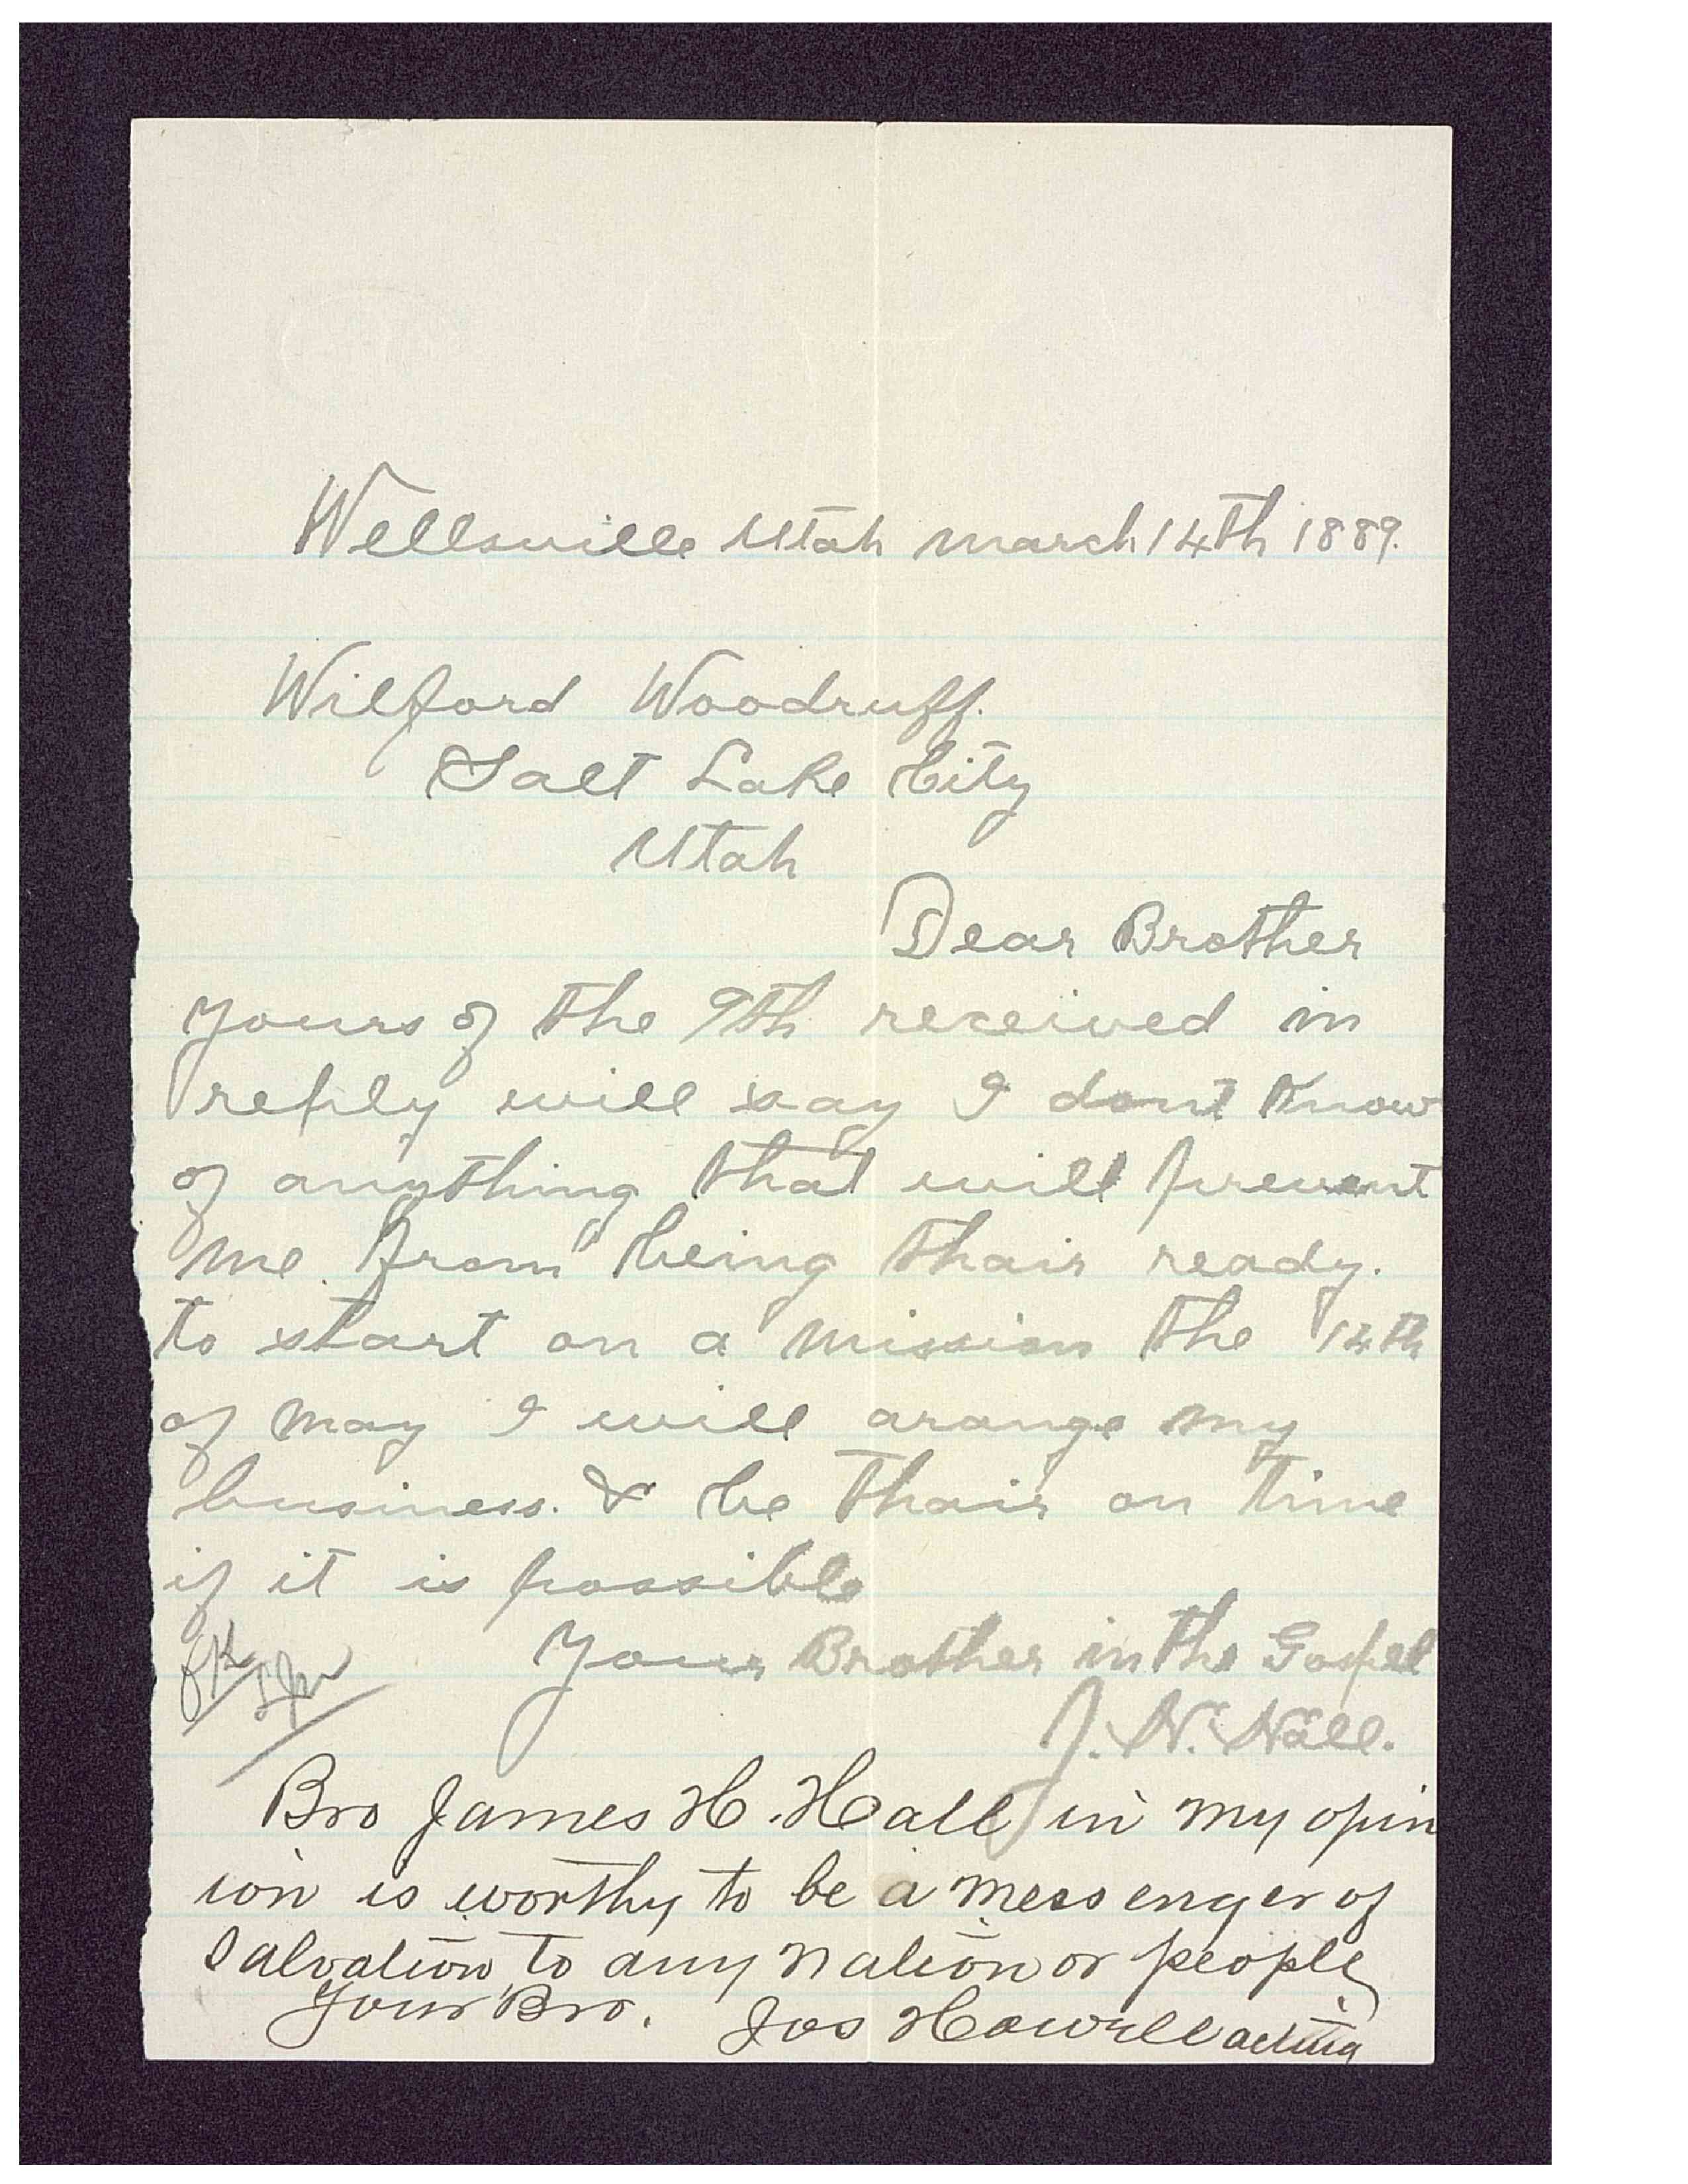 Wellsville Utah march 14th 1889.
Wilford Woodruff.
Salt Lake City
Utah
Dear Brother
yours of the 9th received in
reply will say I dont know
of anything that will prevent
me from being thair ready.
to start on a mission the 14th
of may I will arange my
business. & be thair on time
if it is possible
Your Brother in the Gospel
J. H. Hall.
Bro James H. Hall in my opin
ion is worthy to be a messenger of
Salvation to any nation or people
Your Bro. Jos Howell acting